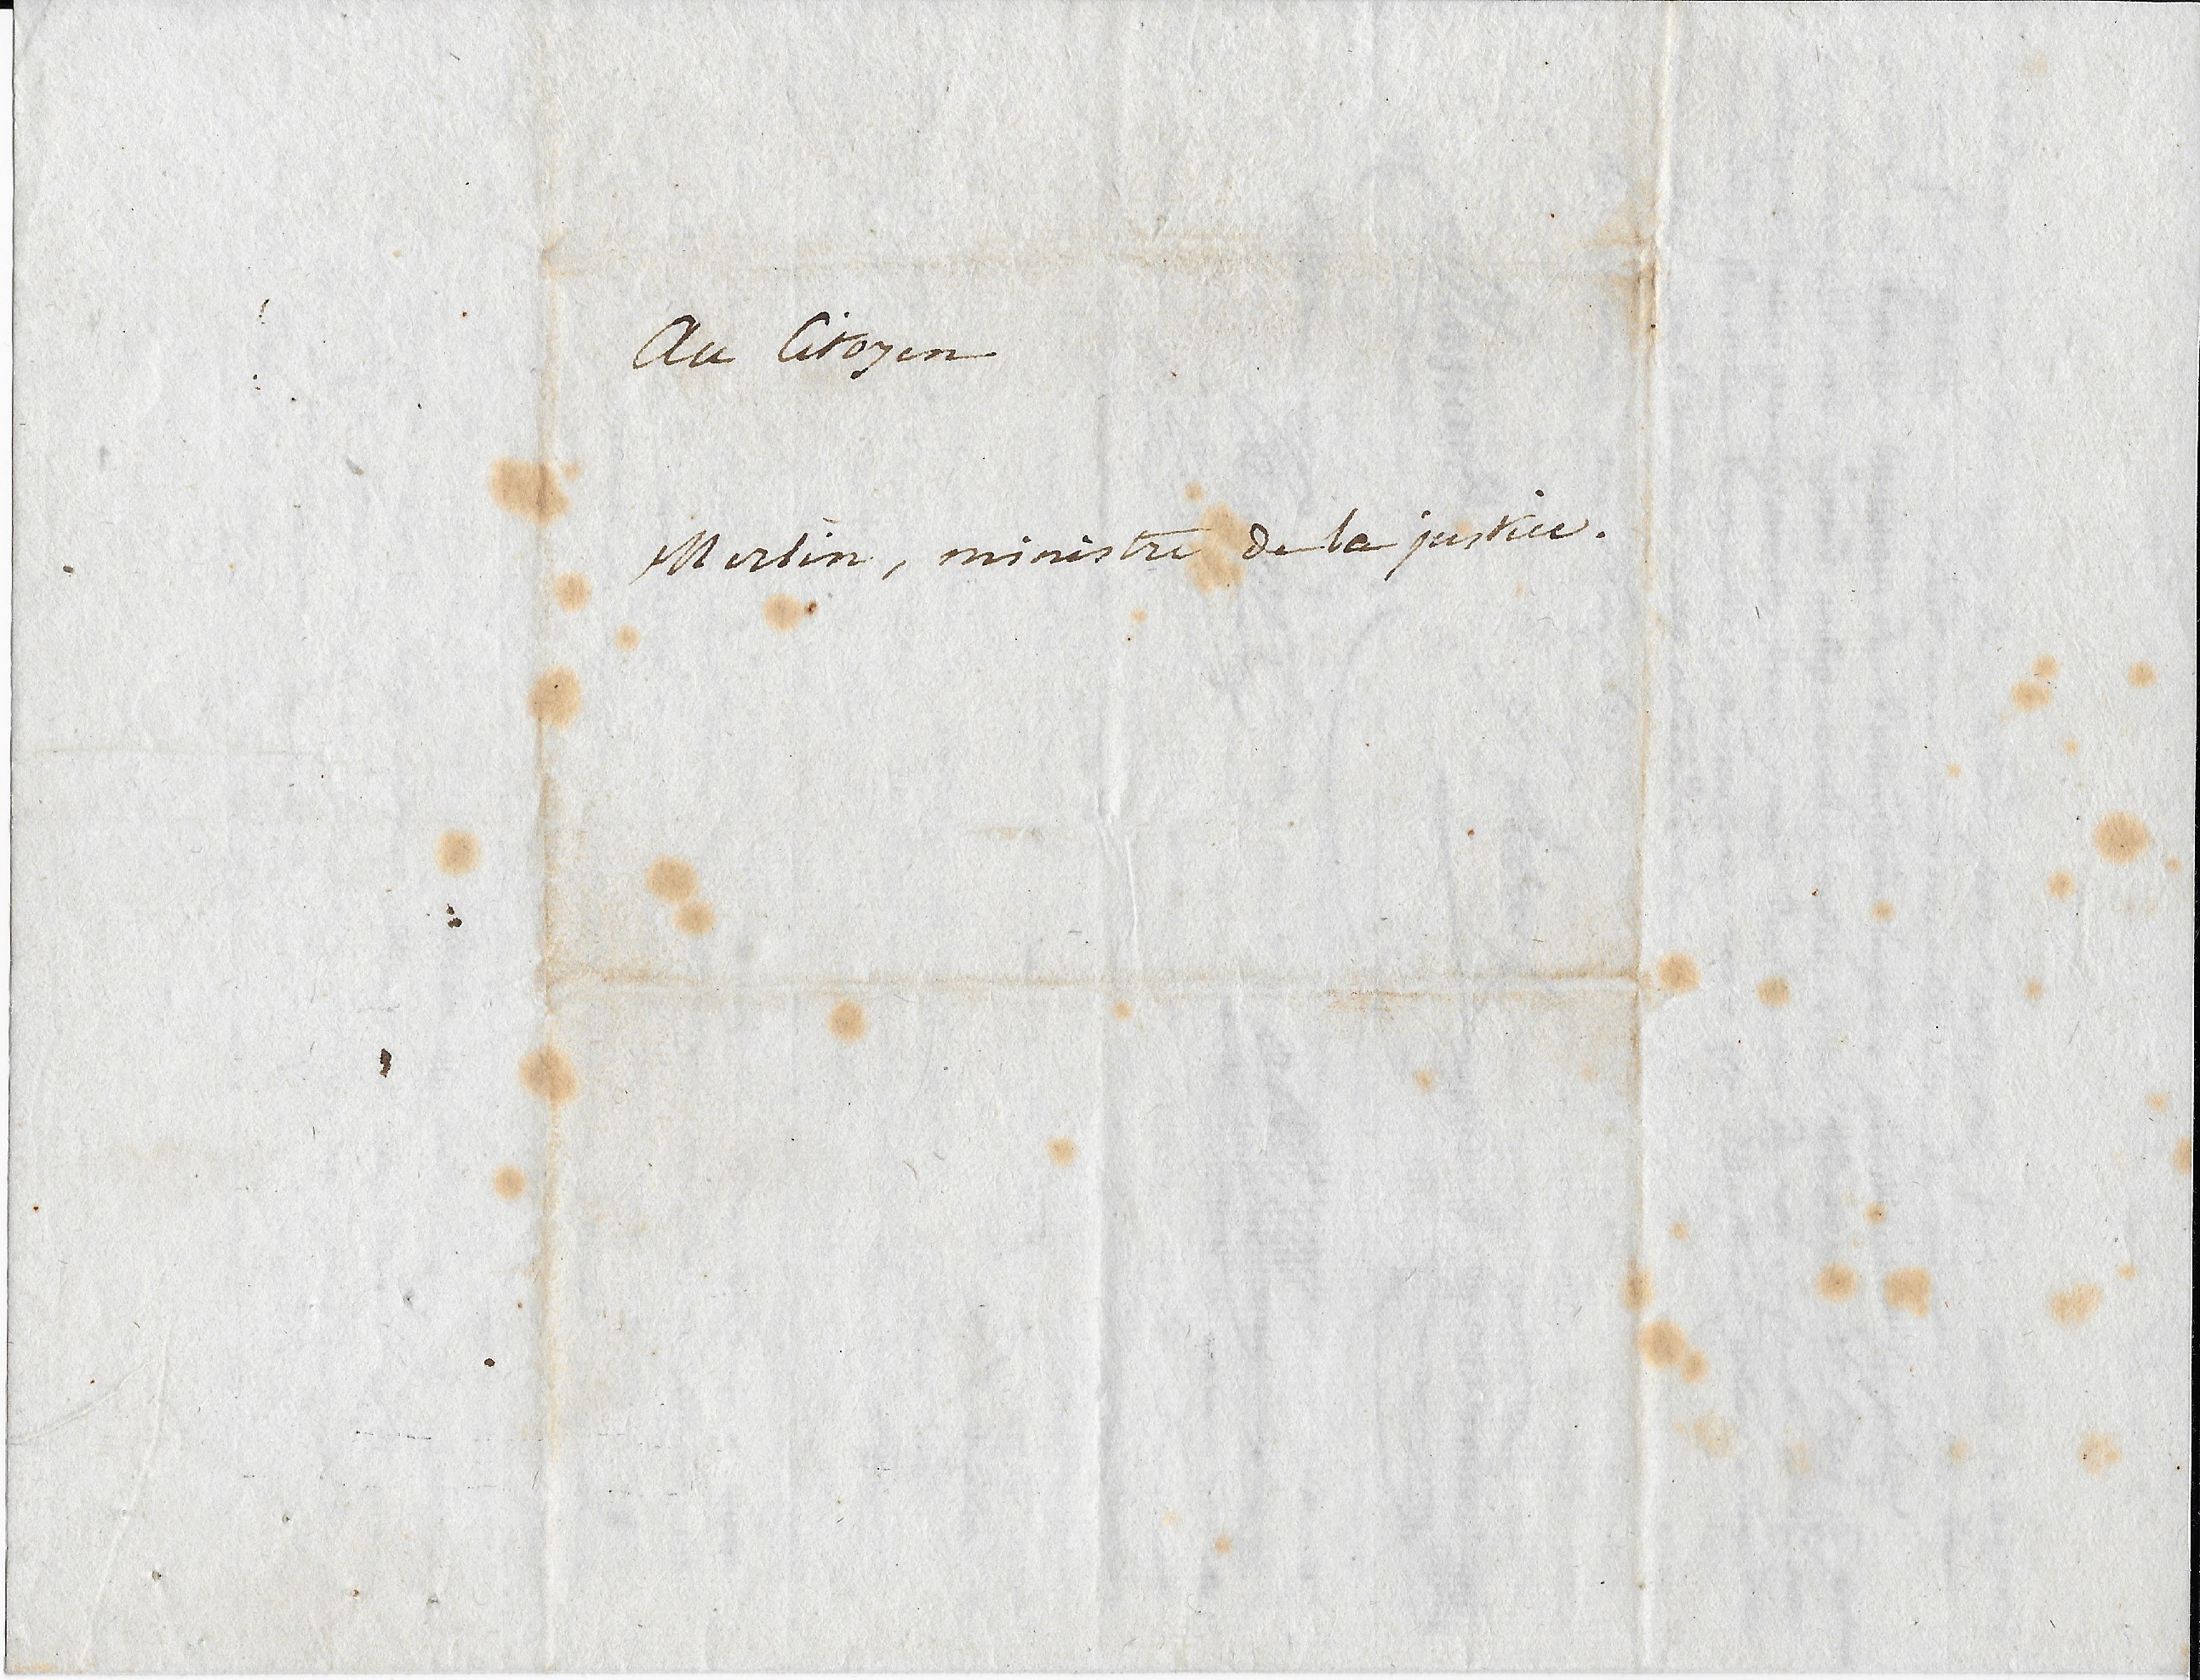 Au Citoyen
Merlin, ministre de la justice.